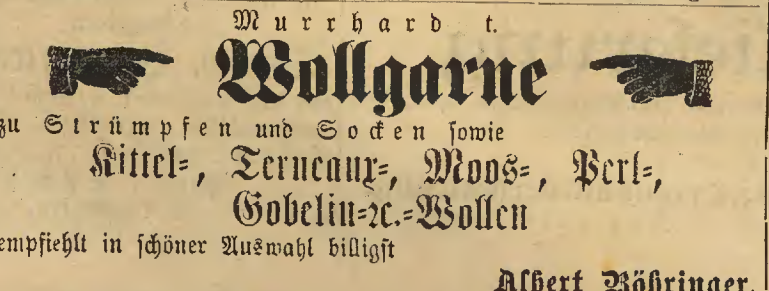 Murrhardt.
Wollgarne
zu Strümpfen und Socken sowie
Kittel=, Terneaux=, Moos=, Perl=,
Gobelin=ꝛc.=Wollen
empfiehlt in schöner Auswahl billigst
Albert Böhringer.